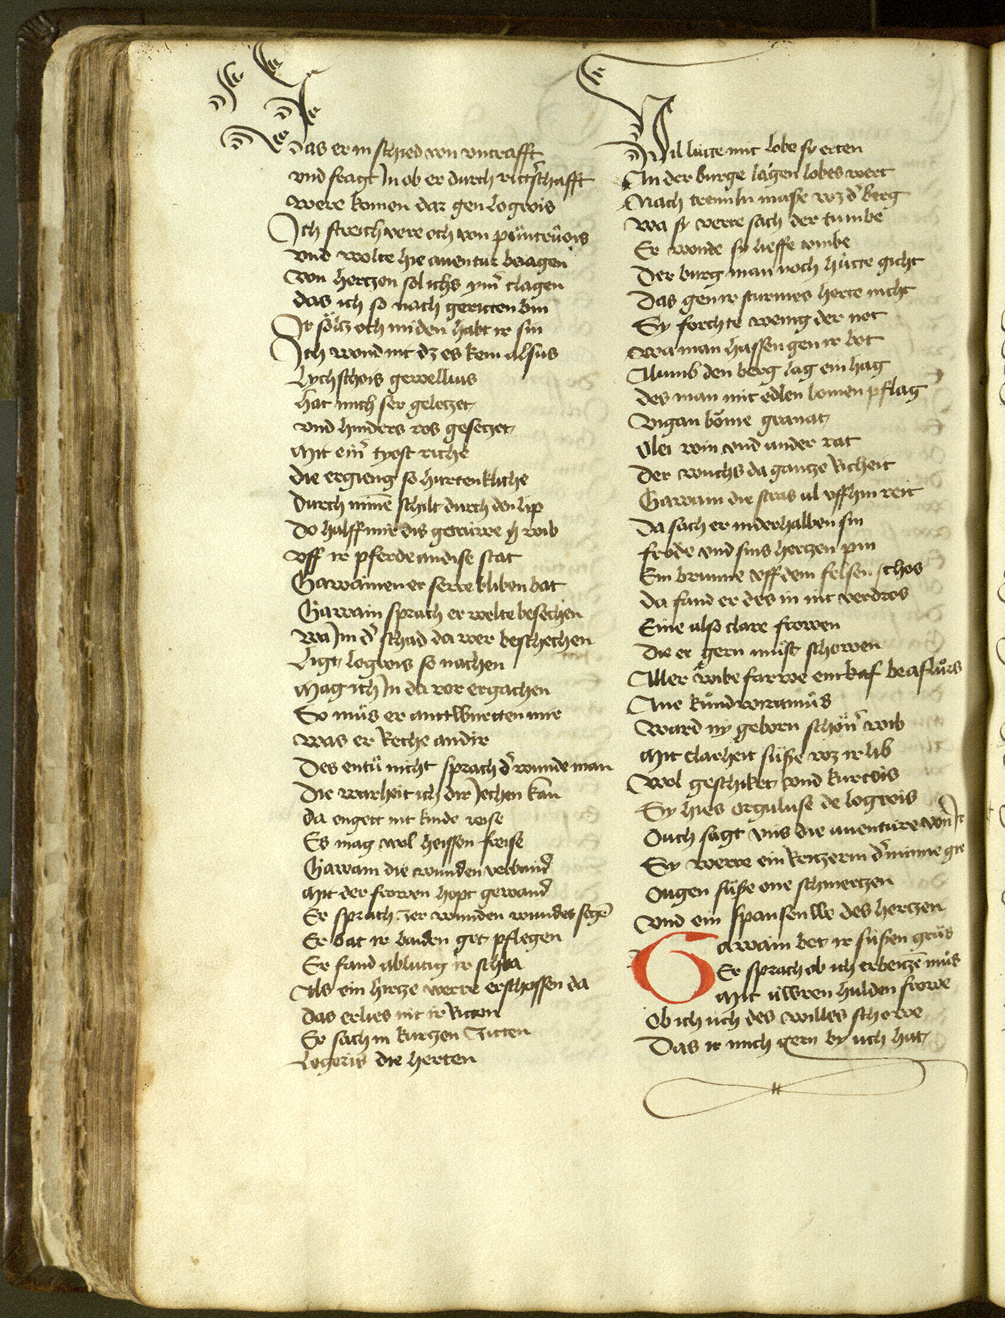 Das er in schied von vntrafft
vnd fragt Jn ob er durch ritt̄schafft
were komen dar gen logrois
Jch streich vere och von püntrůois
vnd wolte hie auentur beiagen
von hertzen sol ichs ym̄ clagen
das ich so nach geritten bin
Jr sölz och miden habt ir sin
Jch wond nit dz es kem alsus
Lychschois gewellius
hat mich ser geletzet
vnd hinders ros gesetzet
mit ein̄ tyost riche
die ergieng so hurtenkliche
durch minē schilt durch den lip
Do halff mir dis gehure wib
vff ir pferde an dise stat
Gawainen er serre bliben bat
Gawain sprach er welte besechen
wa Jm d̄ schad da wer beschechen
Ligt logrois so nachen
mag ich Jn da vor ergachen
So můs er antwurtten mir
was er Reche an dir
Des entů nicht sprach d̄ wunde man
Die warheit ich dir Jechen kan
da engett nit kinde reise
Es mag wol heissen freise
Gawain die wunden verband
mit der frowen hopt gewand
Er sprach zer wunden wundes sege͂
Er bat ir baiden got pflegen
Er fand ablutig ir schla
Als ein hirtze werre erschossen da
das erlies nit ir Ritten
Er sach in kurtzen Zitten
Logeris die herten
Vil lütte mit lobe sy erten
An der burge lagen lobes wert
Nach treniln masse wz d̄ berg
wa sy verre sach der tumbe
Er wonde sy lieffe vmbe
Der burg man noch hütte gicht
Das gen ir sturmes horte nicht
Sy forchte wenig der not
wa man hassen gen ir bot
Alumb den berg lag ein hag
des man mit edlen bomen pflag
Vigan böme granat
Olei win vnd ander rat
Der wuchs da gantze Richeit
Gawain die stras al vffhin reit
Da sach er niderhalben sin
fröde vnd sins hertzen pin
Ein brunne vff dem felsen schos
da fand er des in nit verdros
Eine also clare frowen
Die er gern můst schowen
Aller wibe farwe ein kaf beaflůrs
Ane kundwiramůs
Ward ny geborn schön̄ wib
mit clarheit süsse wz ir lib
wol geschiket vnd kurtois
Sy hies Orguluse de logrois
Ouch sagt vns die auenture von Jr
Sy were ein reitzerin d̄ minne gir
Ougen süsse one schmertzen
vnd ein spansenwe des hertzen
Gawain bot ir süssen grůs
Er sprach ob ich erbeitzē můs
mit üwren hulden frowe
Ob ich uch des willes schowe
Das ir mich gern by uch hat